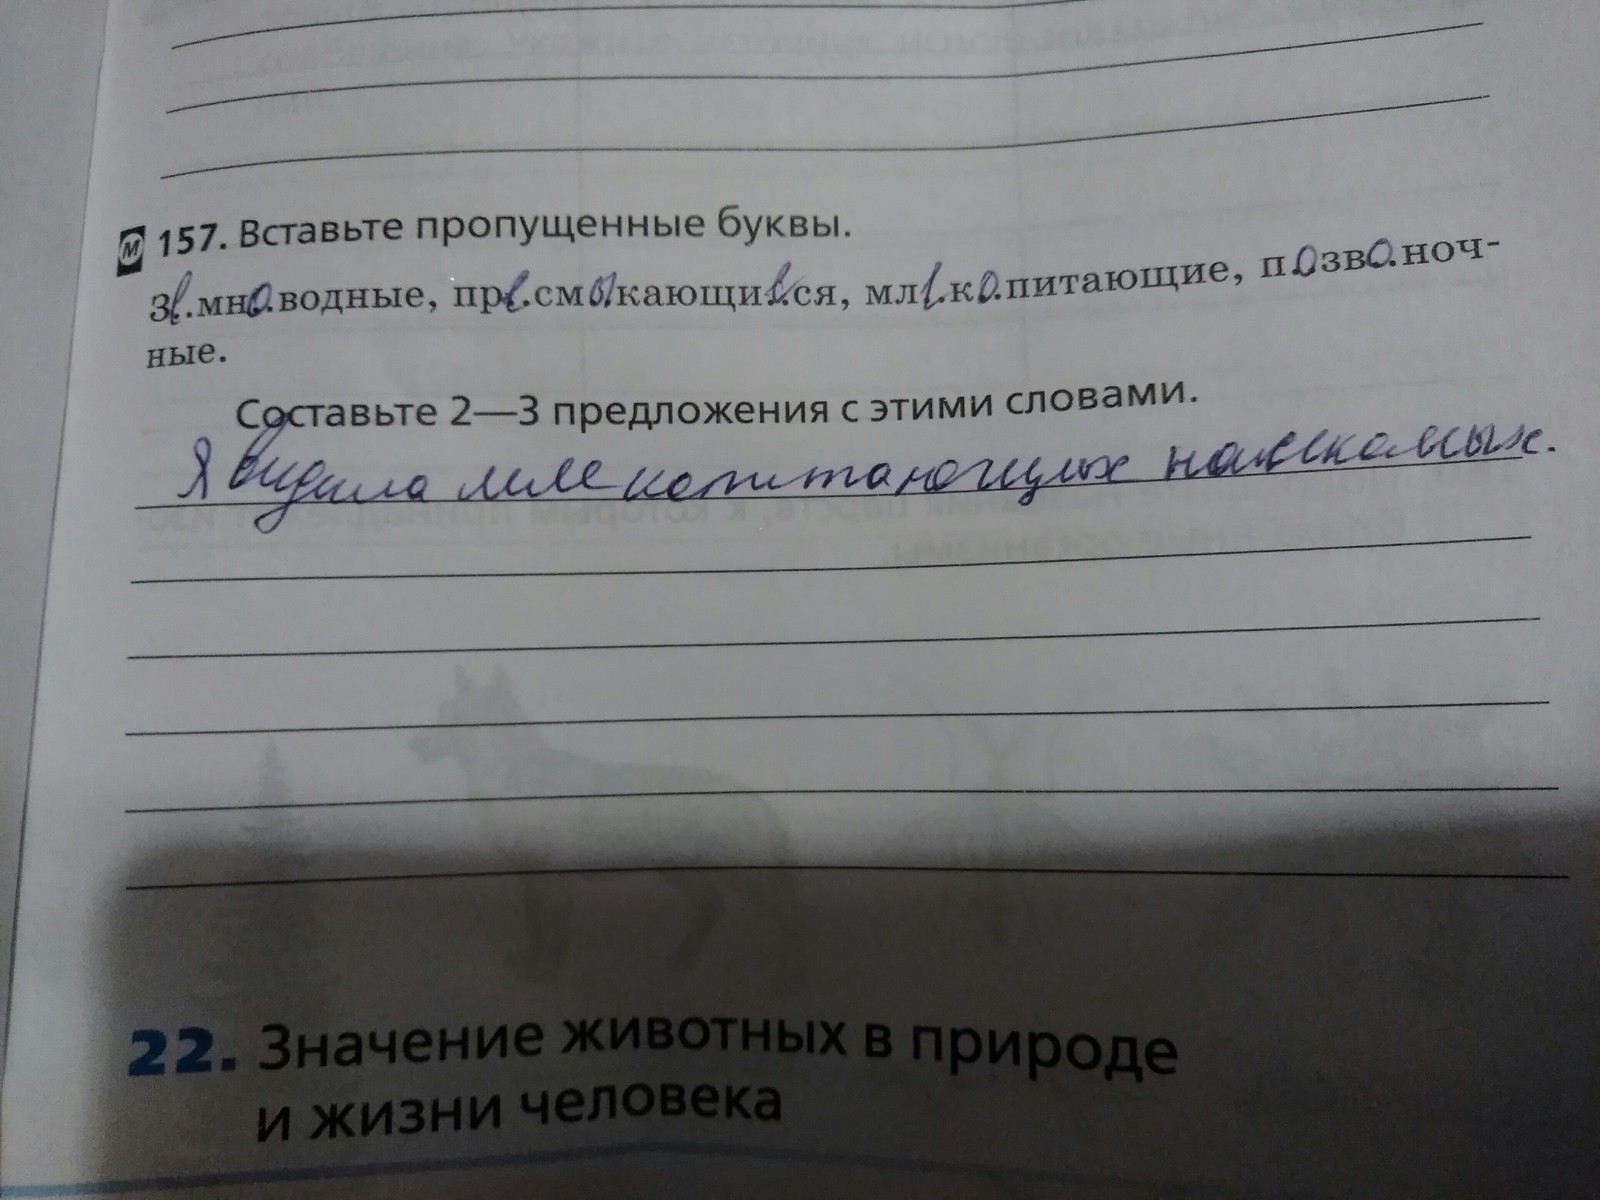 М 157. Вставьте пропущенные буквы.
Зе.мно.водные, пре.смыкающие.ся, мле.ко.питающие, позво.ноч-
ные.
Составьте 2—3 предложения с этими словами.
Я видила млекопитающих насекомых.
22. Значение животных в природе
и жизни человека